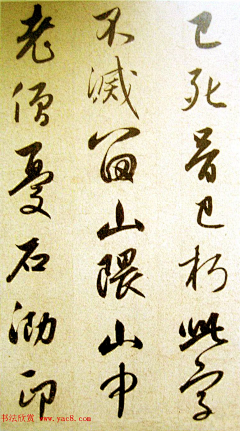 已死骨已朽此字
不滅留山隈山中
老僧憂石泐印
书法欣赏 www.yac8.com